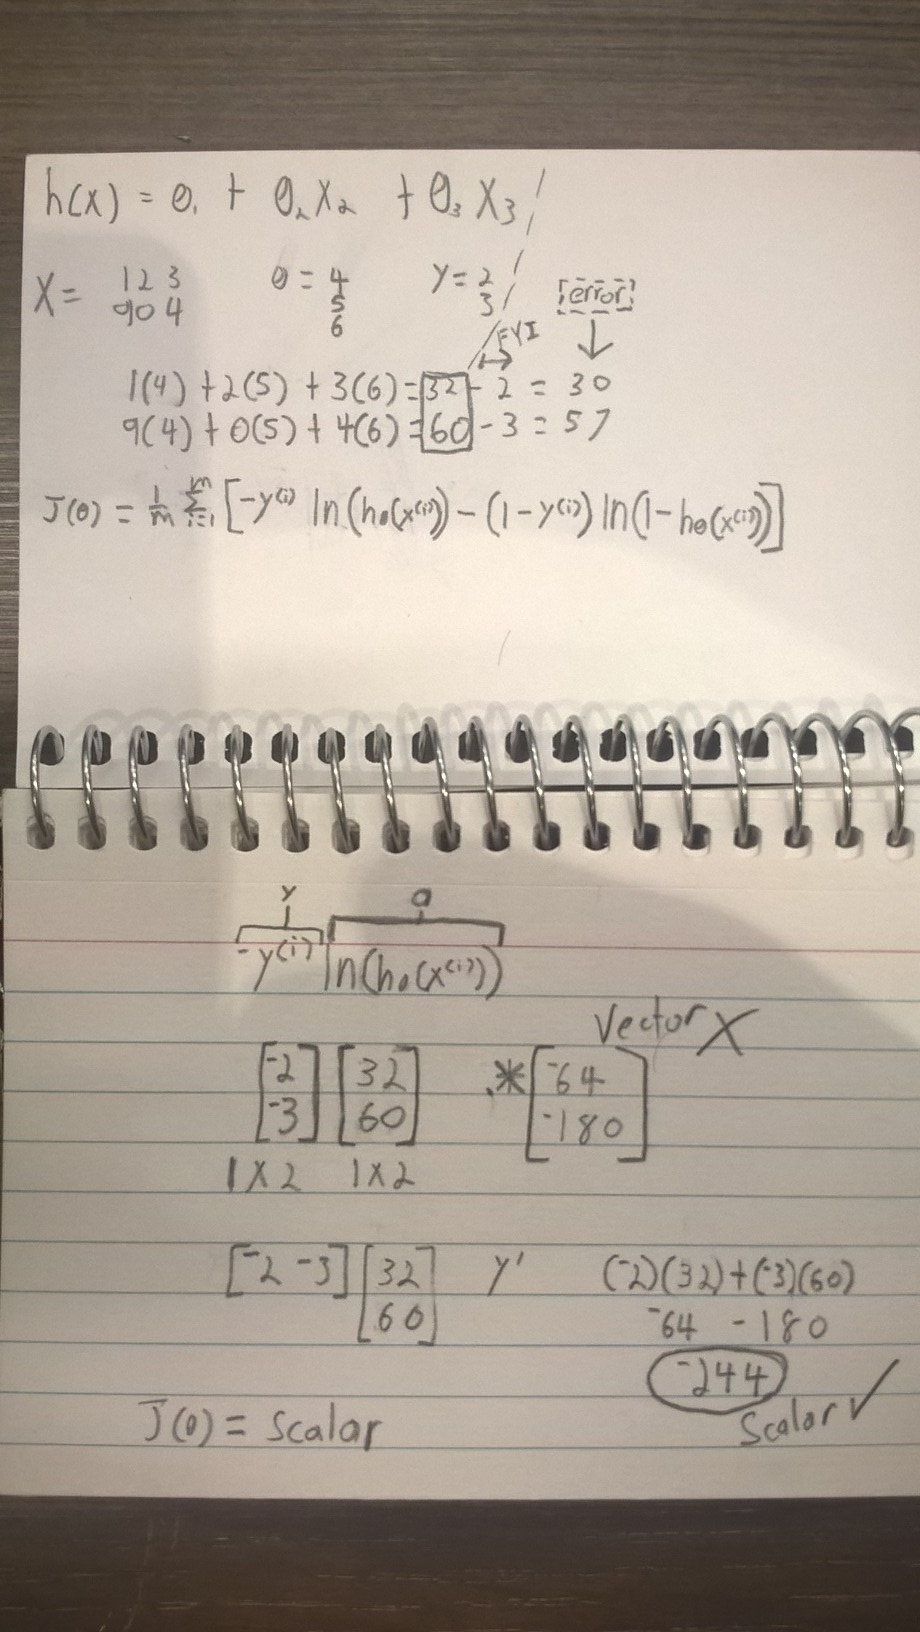 h(x) = θ₁ + θ₂x₂ + θ₃x₃
X = 1 2 3 θ = 4 y = 2
9 0 4 5 3 error
6 FYI
1(4) + 2(5) + 3(6) = 32 - 2 = 30
9(4) + 0(5) + 4(6) = 60 - 3 = 57
J(θ) = 1/m Σ i=1 m [-y⁽ⁱ⁾ ln(hθ(x⁽ⁱ⁾)) - (1-y⁽ⁱ⁾) ln(1-hθ(x⁽ⁱ⁾))]
y a
-y⁽ⁱ⁾ ln(hθ(x⁽ⁱ⁾))
Vector X
[-2 [32 .* [-64
-3] 60] -180]
1x2 1x2
[-2 -3] [32 y' (-2)(32)+(-3)(60)
60] -64 -180
-244
J(θ) = scalar scalar ✓